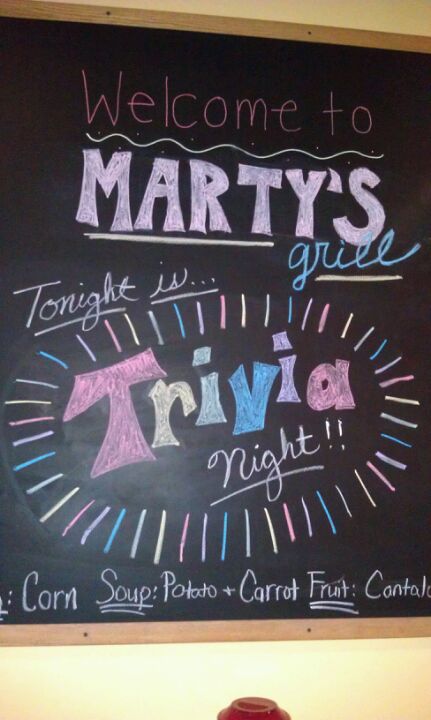 Welcome to
MARTY'S
grill
Tonight is...
Trivia
Night!!
: Corn Soup: Potato + Carrot Fruit: Cantal